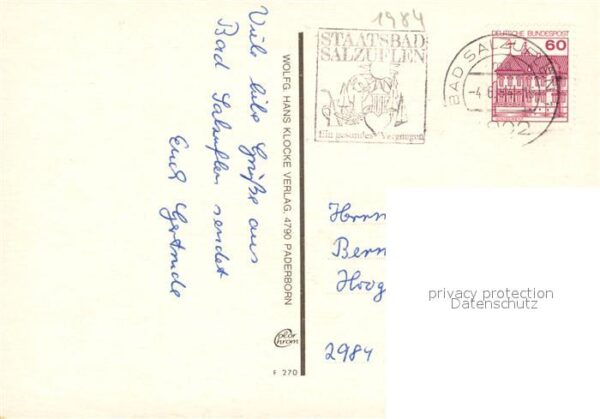 1984
STAATSBAD
SALZUFLEN
Ein gesundes Vergnügen
DEUTSCHE BUNDESPOST
60
BAD SALZUFLEN
-4.6.
Viele liebe Grüße aus
Bad Salzuflen sendet
Euch Gertrude
WOLFG. HANS KLOCKE VERLAG, 4790 PADERBORN
color
chrom
F 270
Herrn
Bern
Hoog
2984
privacy protection
Datenschutz